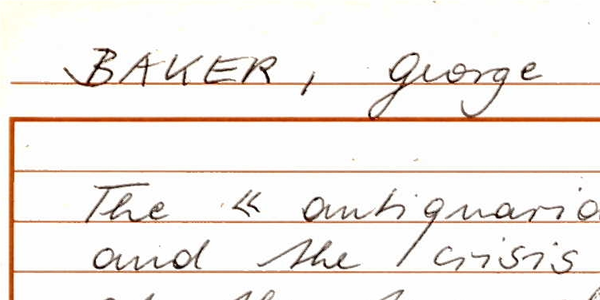 BAKER, George
The « antiquaria
and the crisis